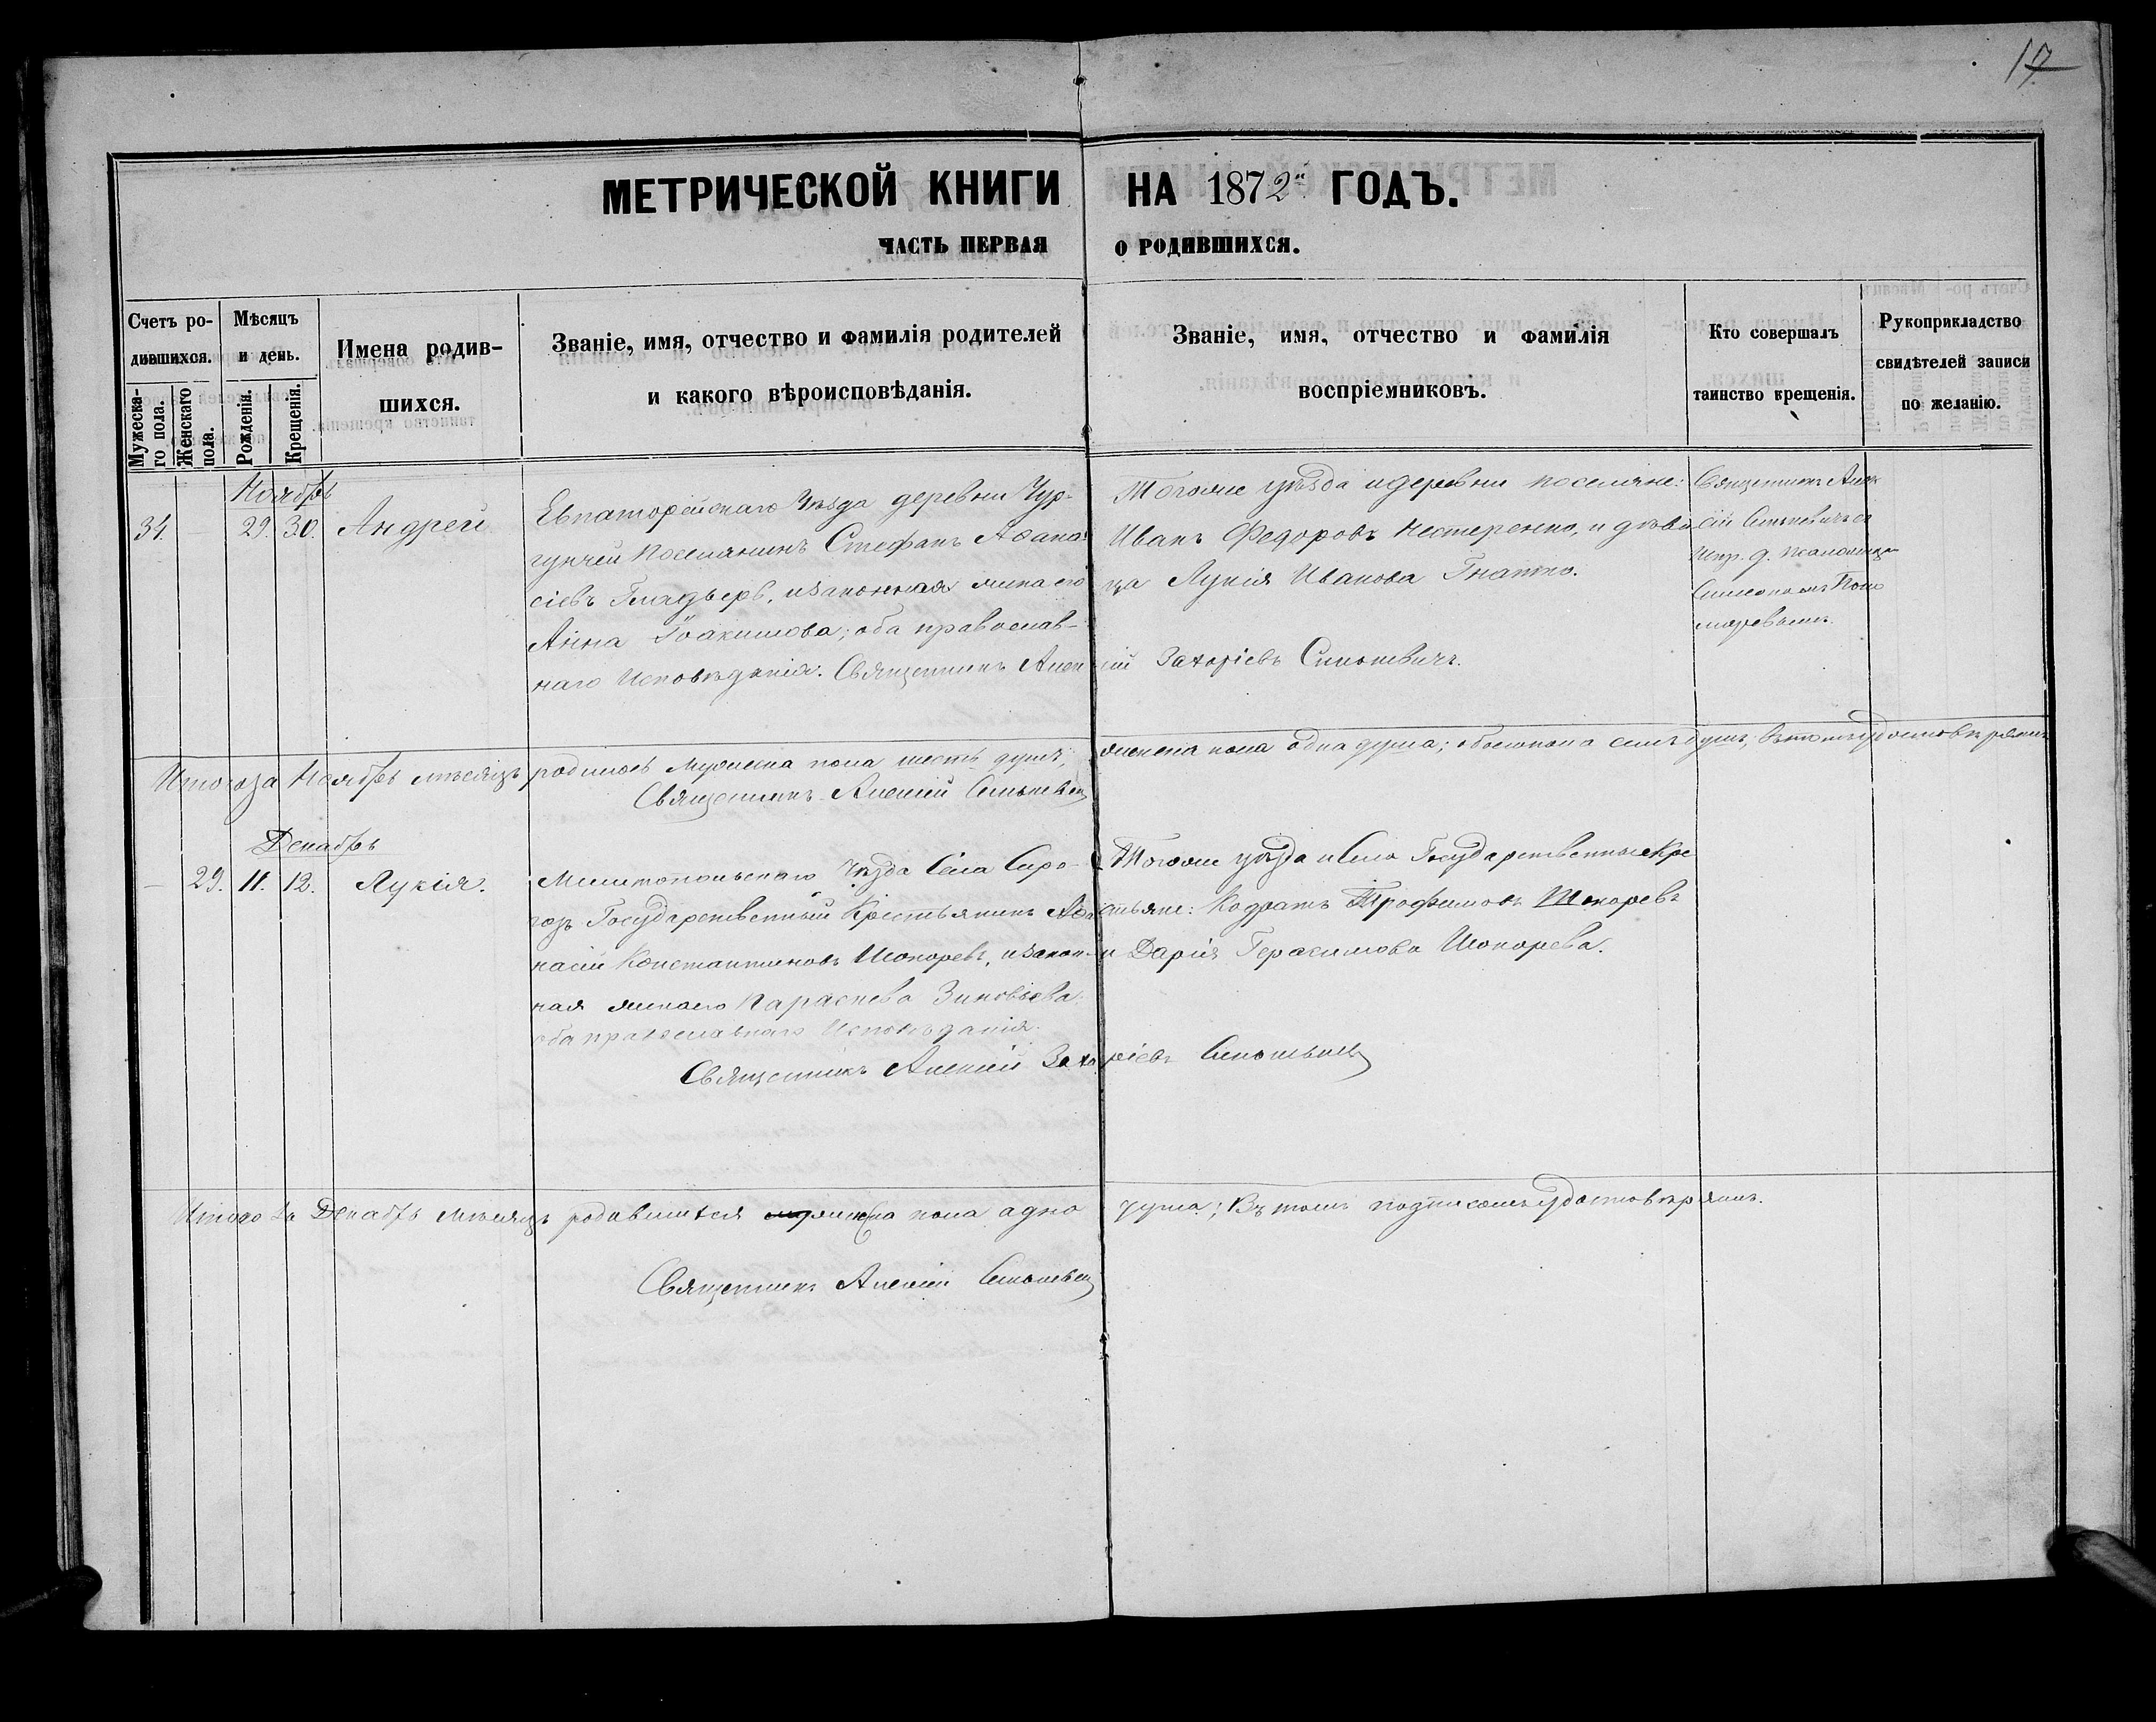 17
МЕТРИЧЕСКОЙ КНИГИ НА 1872й ГОДЪ.
ЧАСТЬ ПЕРВАЯ О РОДИВШИХСЯ.
Счетъ ро-
дившихся.
Мужеска-
го пола.
Женскаго
пола.
Мѣсяцъ
и день.
Рожденія.
Крещенія.
Имена родив-
шихся.
Званіе, имя, отчество и фамилія родителей
и какого вѣроисповѣданія.
Званіе, имя, отчество и фамилія
воспріемниковъ.
Кто совершалъ
таинство крещенія.
Рукоприкладство
свидѣтелей записи
по желанію.
Ноябрь
34. — 29. 30. Андрей
Евпаторійскаго Уѣзда деревни Чур-
гунчей Поселянинъ Стефанъ Аѳана-
сіевъ Гладырь, и законная жена его
Анна Іоакимова; оба православ-
наго Исповѣданія.
Тогоже уѣзда и деревни поселяне:
Иванъ Федоровъ Нестеренко, и дѣви-
ца Лукія Иванова Гнатко.
Священникъ Алек
сій Синькевичъ съ
Испр. д. Псаломщи
Симеономъ Поно
маревымъ.
Священникъ Алексій Захаріевъ Синькевичъ.
Итого за Ноябрь мѣсяцъ родилось мужеска пола шесть душъ, женска пола одна душа; обоего пола семь душъ, въ томъ удостовѣряемъ
Священникъ Алексій Синькевич
Декабрь
— 29. 11. 12. Лукія.
Мелитопольскаго Уѣзда Села Сиро-
гозъ Государственный Крестьянинъ Аѳа
насій Константиновъ Шокоревъ, и закон-
ная жена его Параскева Зиновьева.
оба православнаго Исповѣданія.
Тогоже уѣзда и Села Государственные Кре
стьяне: Кодратъ Трофимовъ Шокоревъ
и Дарія Герасимова Шокорева.
Священникъ Алексій Захаріевъ Синькевич
Итого За Декабрь мѣсяцъ родившихся женска пола одна душа; Въ томъ подписомъ удостовѣряемъ.
Священникъ Алексій Синькевич